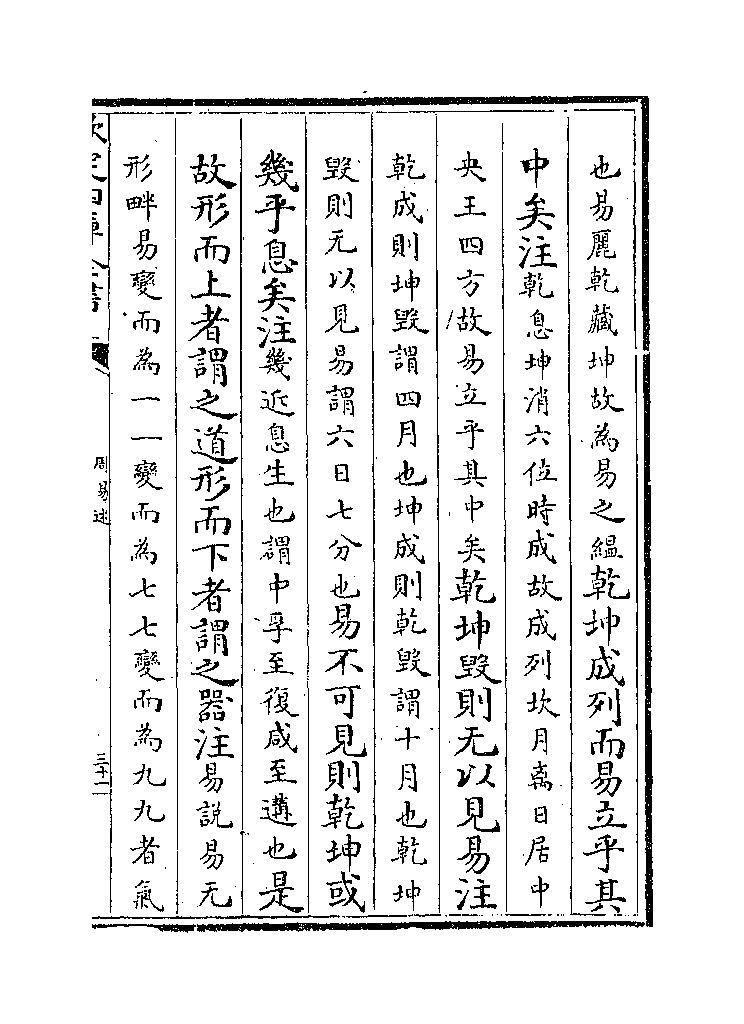 也易麗乾藏坤故為易之緼乾坤成列而易立乎其
中矣注乾息坤消六位時成故成列坎月离日居中
央王四方故易立乎其中矣乾坤毀則无以見易注
乾成則坤毀謂四月也坤成則乾毀謂十月也乾坤
毀則无以見易謂六日七分也易不可見則乾坤或
幾乎息矣注幾近息生也謂中孚至復咸至遘也是
故形而上者謂之道形而下者謂之器注易説易无
形畔易變而為一一變而為七七變而為九九者氣
周易述
三十二